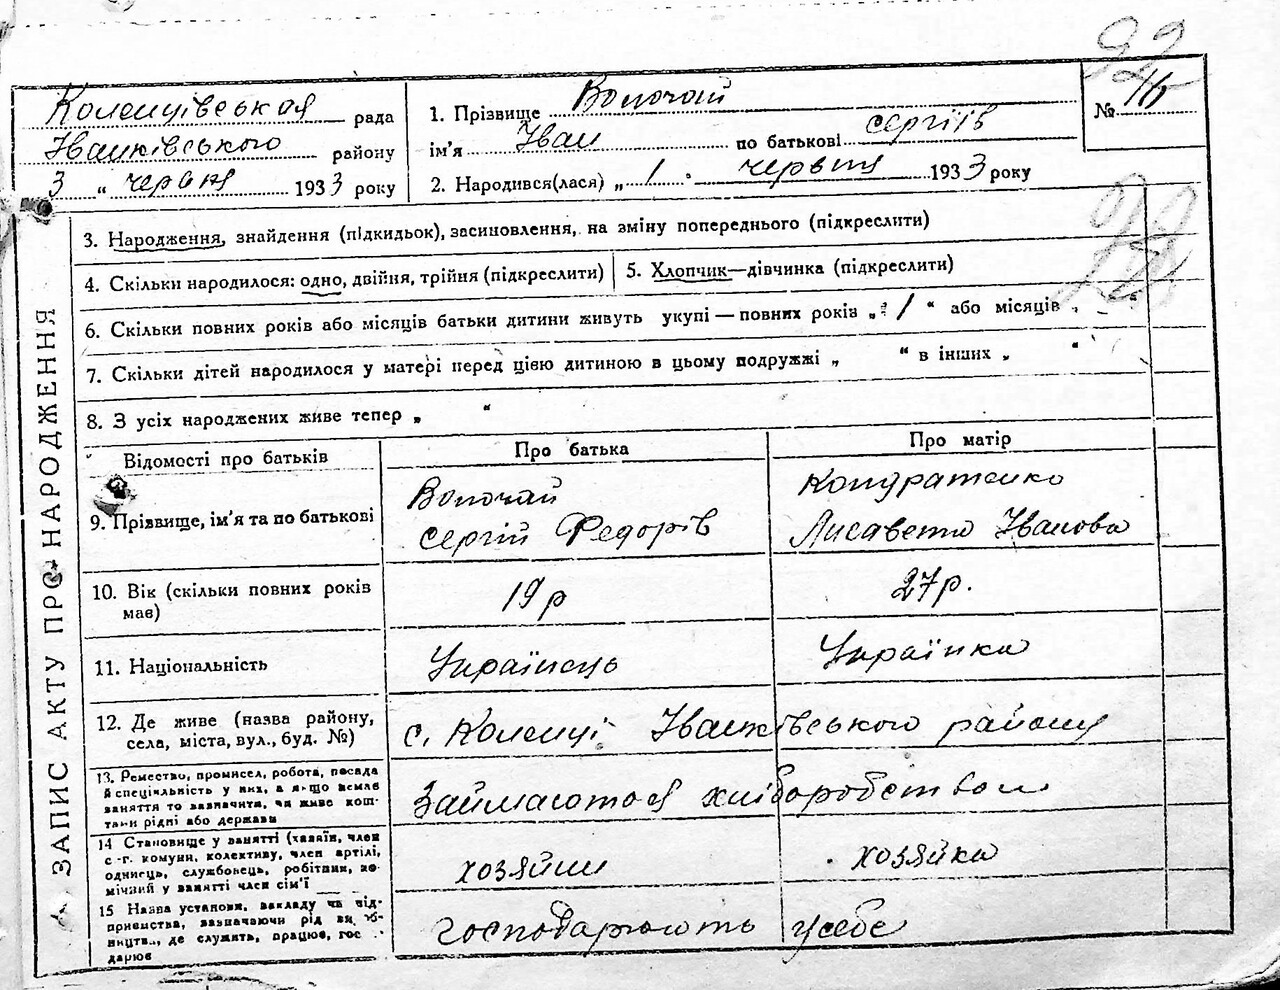 92
Коленцівська рада
Іванківського району
3 „ червня 1933 року
1. Прізвище Волочай
ім'я Іван по батькові Сергіїв
2. Народився(лася) „ 1 . червня 1933 року
№ 116
ЗАПИС АКТУ ПРО НАРОДЖЕННЯ
3. Народження, знайдення (підкидьок), засиновлення, на зміну попереднього (підкреслити)
4. Скільки народилося: одно, двійня, трійня (підкреслити)
5. Хлопчик—дівчинка (підкреслити)
6. Скільки повних років або місяців батьки дитини живуть укупі — повних років „ 1 “ або місяців „ “
7. Скільки дітей народилося у матері перед цією дитиною в цьому подружжі „ “ в інших „ “
8. З усіх народжених живе тепер „ “
Відомості про батьків
Про батька
Про матір
9. Прізвище, ім'я та по батькові
Волочай
Сергій Федорів
Кондратенко
Лисавета Іванова
10. Вік (скільки повних років
мав)
19 р
27 р.
11. Національність
Українець
Українка
12. Де живе (назва району,
села, міста, вул., буд. №)
с. Коленці Іванківського району
13. Ремество, промисел, робота, посада
й спеціяльність у них, а якщо немає
заняття то зазначити, чи живе кош-
тами рідні або держави
Займаються хліборобством
14 Становище у занятті (хазяїн, член
с.-г. комуни, колективу, член артілі,
одиниць, службовець, робітник, по-
мічний у занятті член сім'ї
хозяїн
хозяйка
15 Назва установи, закладу чи під-
приємства, зазначаючи рід ви об-
ництв., де служить, працює, гос
дарює
господарюють у себе